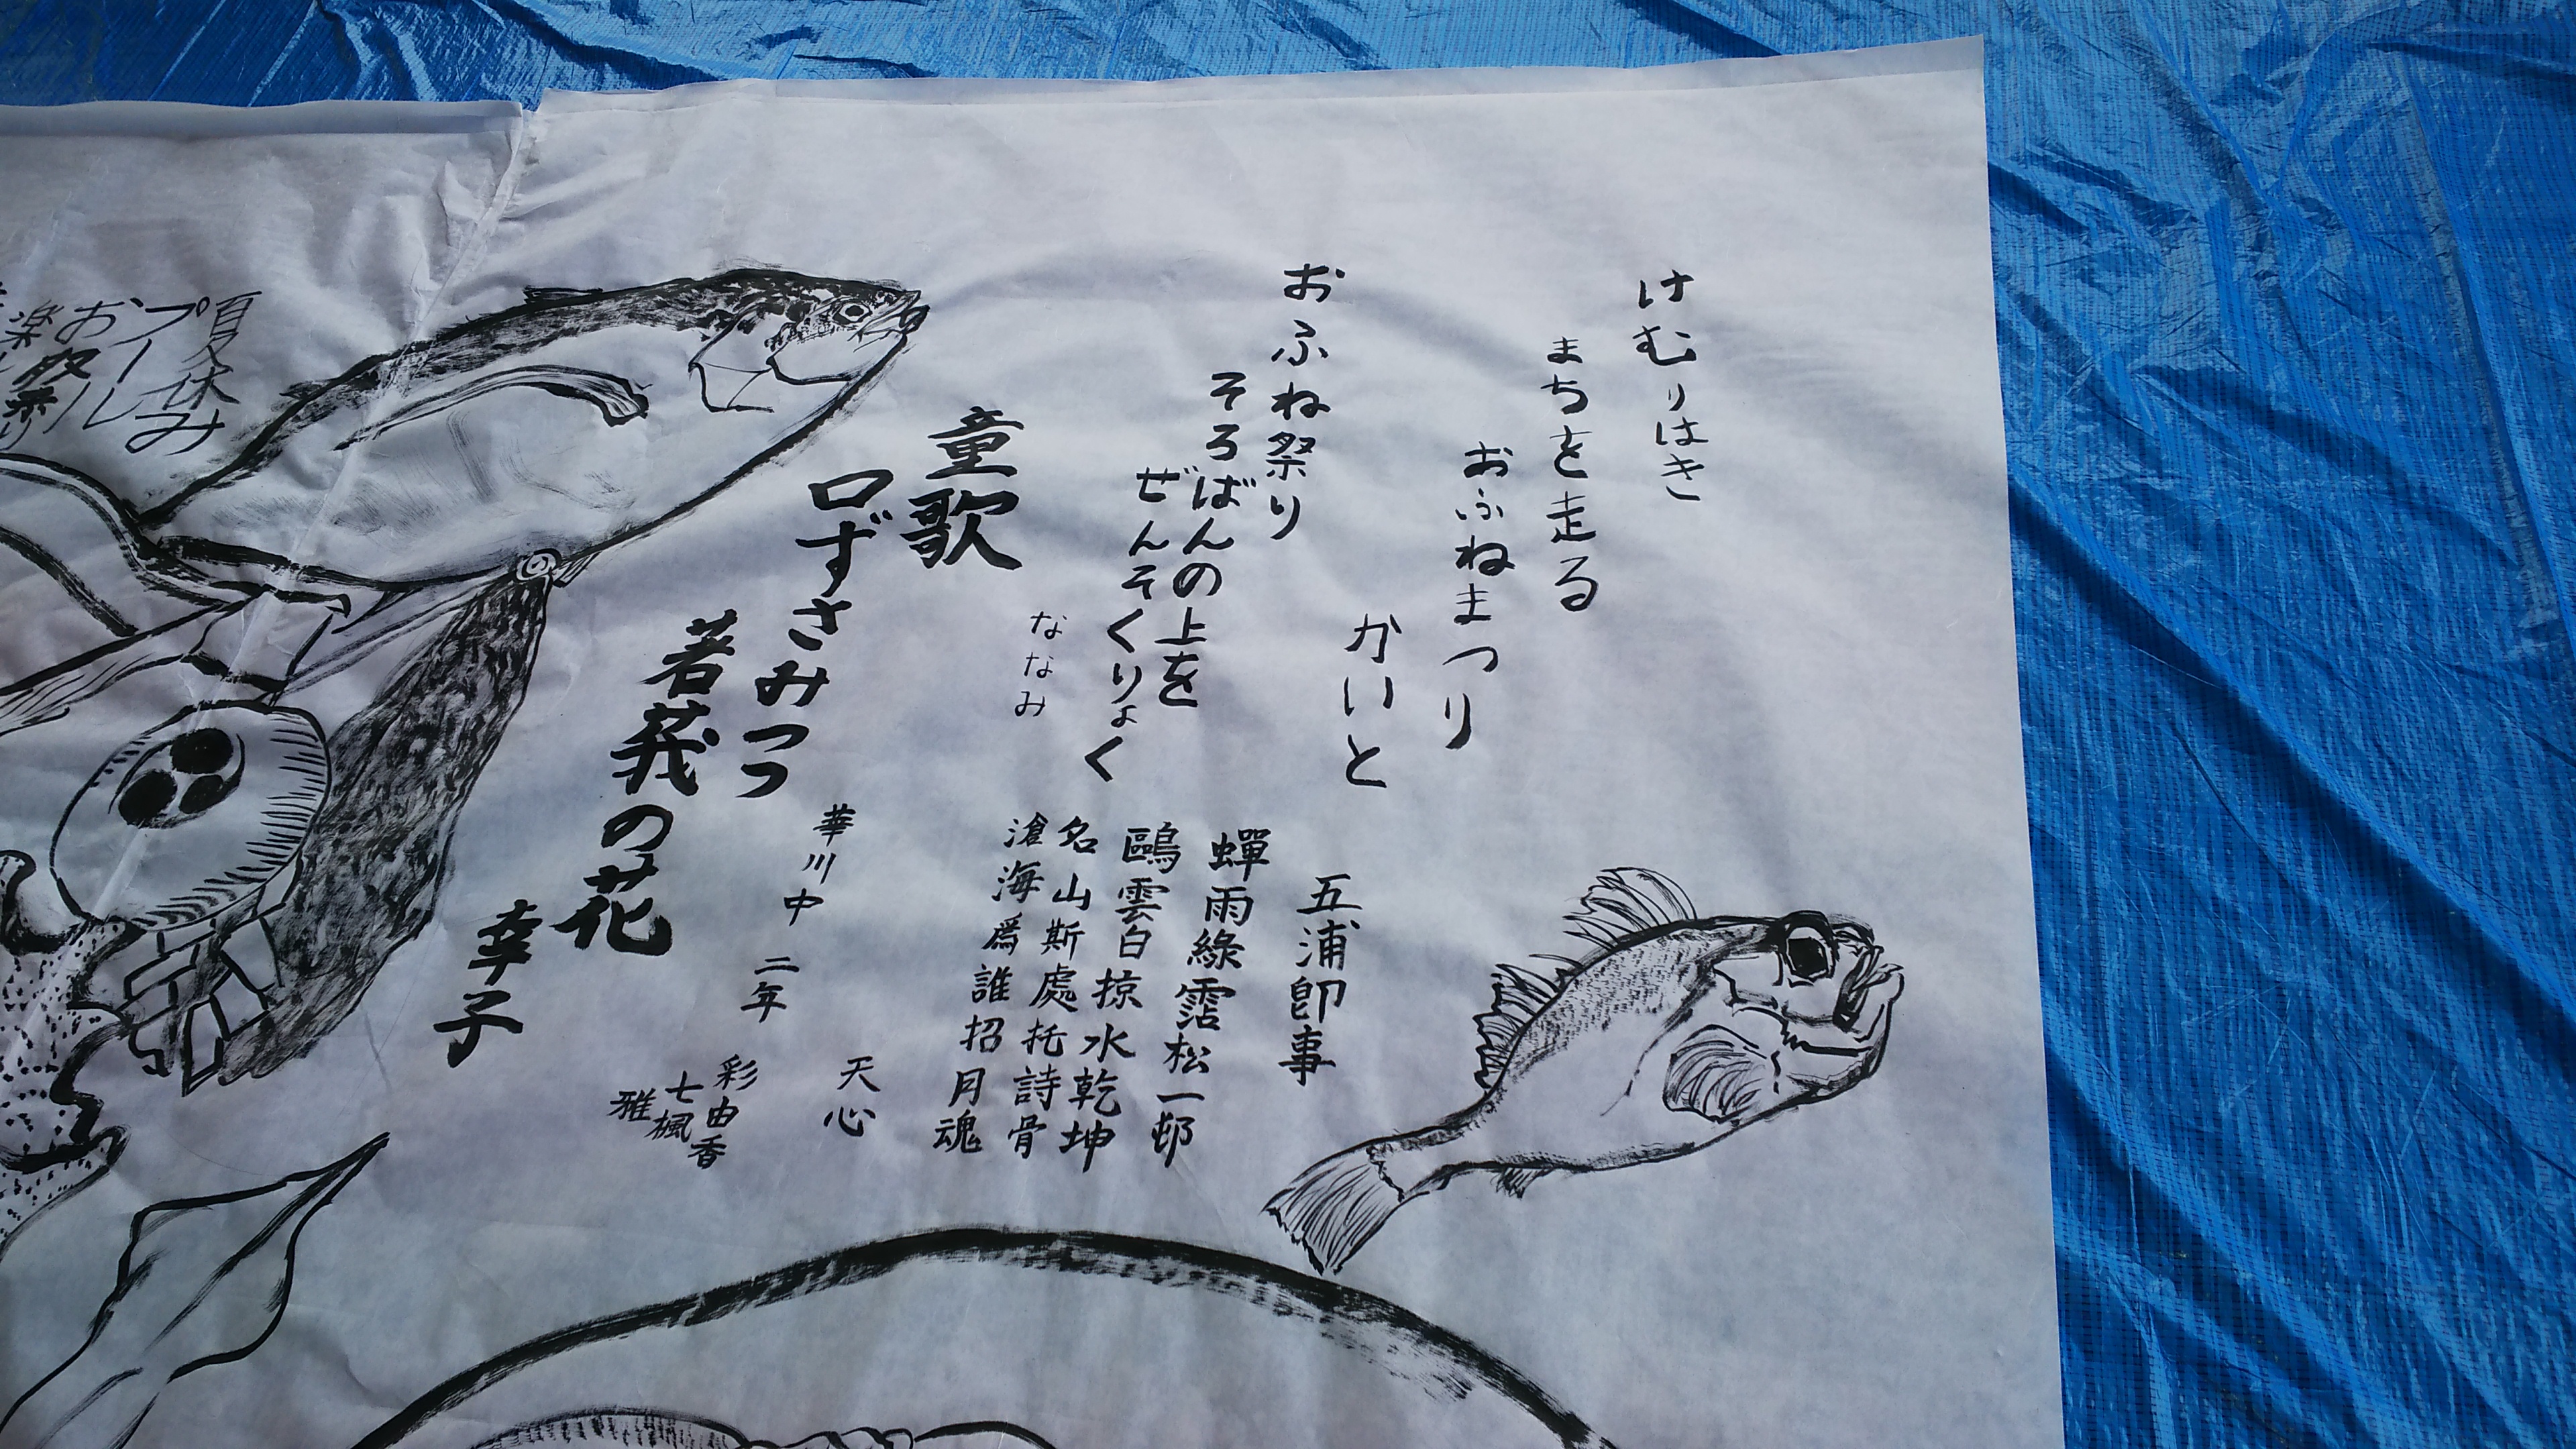 けむりはき
まちを走る
おふねまつり
かいと
おふね祭り
そろばんの上を
ぜんそくりょく
ななみ
五浦即事
蟬雨綠霑松一邨
鷗雲白掠水乾坤
名山斯處托詩骨
滄海爲誰招月魂
天心
華川中 二年
彩由香
七楓
雅
童歌
口ずさみつつ
若莪の花
幸子
夏休み
プール
お祭り